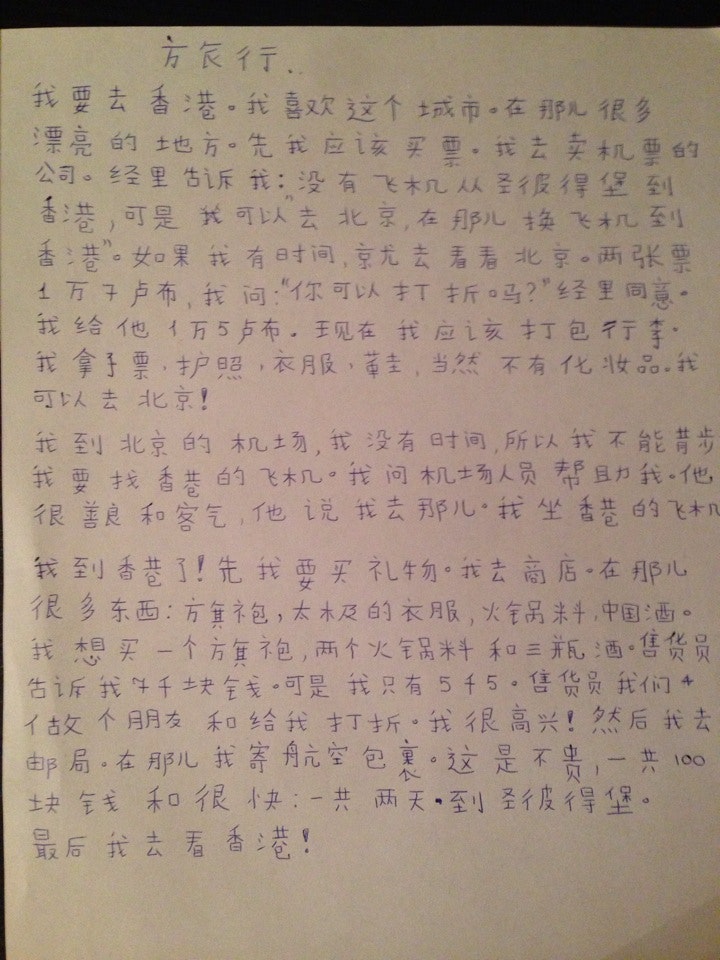 方辰行..
我要去香港。我喜欢这个城市。在那儿很多
漂亮的地方。先我应该买票。我去卖机票的
公司。经里告诉我：没有飞机从圣彼得堡到
香港，可是我可以"去北京，在那儿换飞机到
香港"。如果我有时间，京尤去看看北京。两张票
1万7卢布，我问："你可以打折吗？"经里同意。
我给他1万5卢布。现在我应该打包行李。
我拿了票，护照，衣服，鞋，当然不有化妆品。我
可以去北京！
我到北京的机场，我没有时间，所以我不能散步
我要找香港的飞机。我问机场人员帮助我。他
很善良和客气，他说我去那儿。我坐香港的飞机
我到香港了！先我要买礼物。我去商店。在那儿
很多东西：方旗袍，太极的衣服，火锅料，中国酒。
我想买一个方旗袍，两个火锅料和三瓶酒。售货员
告诉我7千块钱。可是我只有5千5。售货员我们
做个朋友和给我打折。我很高兴！然后我去
邮局。在那儿我寄航空包裹。这是不贵，一共100
块钱和很快：一共两天。到圣彼得堡。
最后我去看香港！